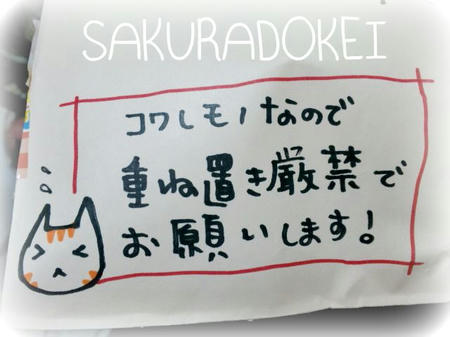 SAKURADOKEI
コワレモノなので
重ね置き厳禁で
お願いします!